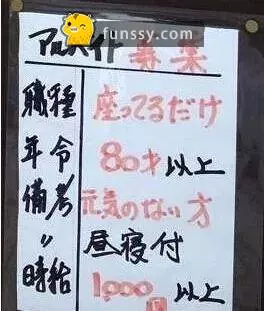 funssy.com
アルバイト 募集
職種 座ってるだけ
年令 80才以上
備考 元気のない方
〃 昼寝付
時給 1,000円以上